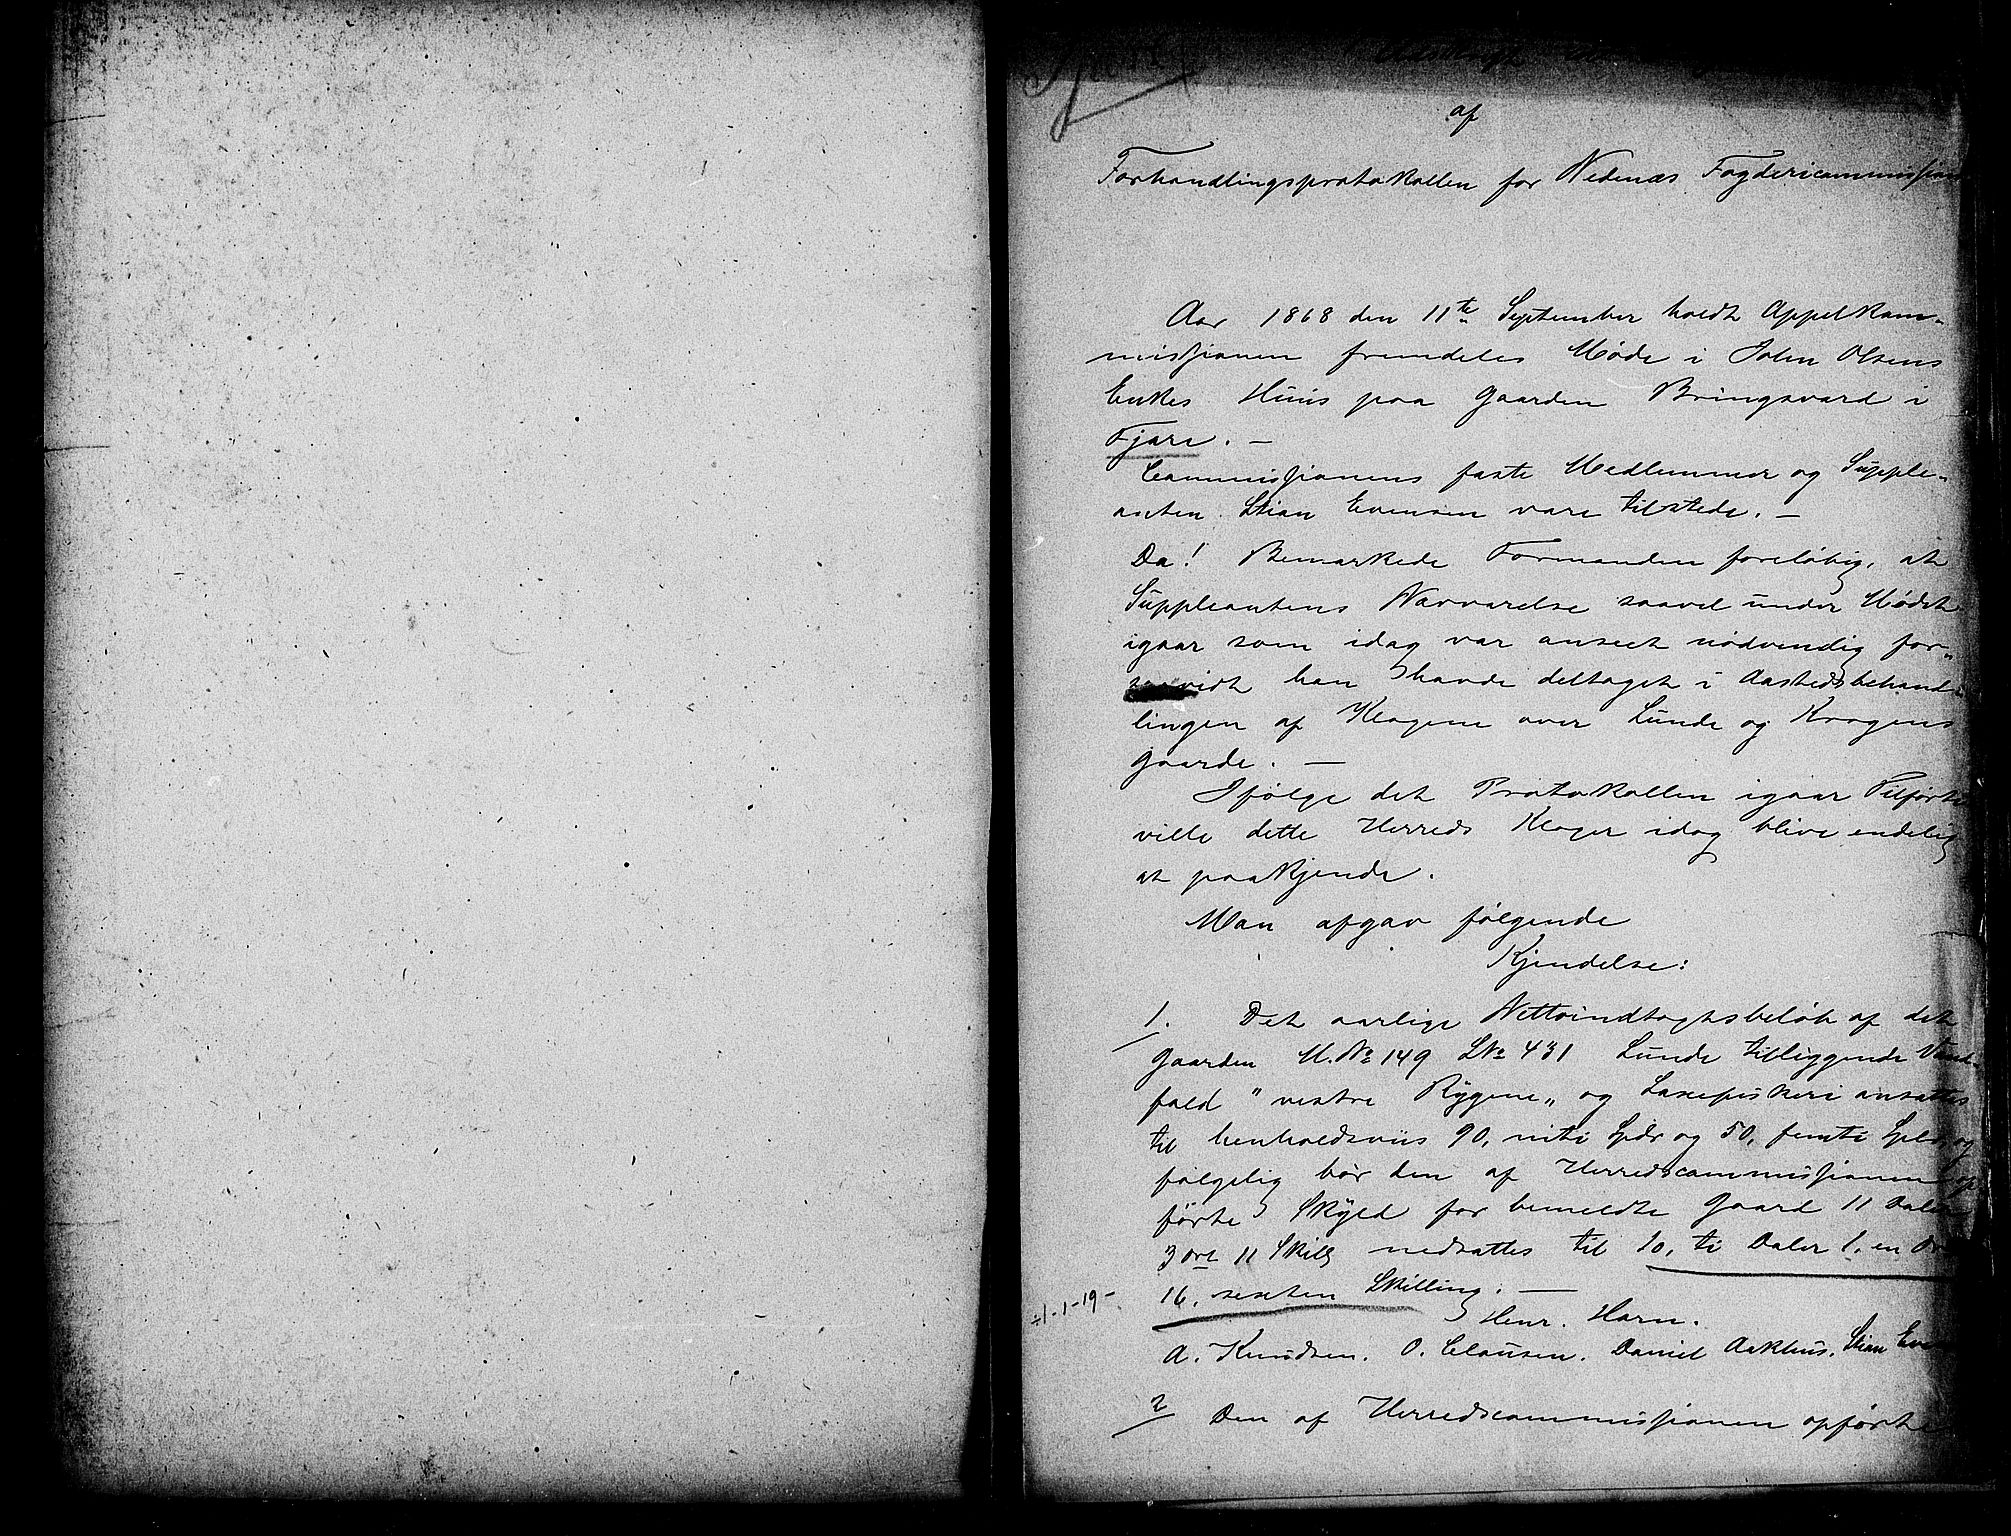 Fjære
Udskrift
af
Forhandlingsprotokollen for Nedenæs Fogdericommission
Aar 1868 den 11te September holdt Appelkom-
missjonen fremdeles Møde i John Olsens
Enkes Huus paa Gaarden Bringsværd i
Fjære. —
Commissjonens faste Medlemmer og Supple-
anten Stian Evensen vare tilstede. —
Da! Bemærkede Formanden foreløbig, at
Suppleantens Nærværelse saavel under Mødet
igaar som idag var anseet nødvendig for-
saavidt han havde deltaget i Aastedsbehand-
lingen af Klagene over Lunde og Krogens
Gaarde. —
Ifølge det Protokollen igaar Tilførte
ville dette Herreds Klager idag blive endelig
at paakjende.
Man afgav følgende
Kjendelse:
1. Det aarlige Nettoindtægtsbeløb af det
Gaarden M.No 149 LNo 431 Lunde tilliggende Vand-
fald "vestre Rygene" og Laxefiskeri ansættes
til henholdsviis 90, niti Spdr og 50, femti Spdr og
følgelig bør den af Herredscommissjonen op
førte Skyld for bemeldte Gaard 11 Daler
3 ort 11 Skill nedsættes til 10, ti Daler 1, en Ort
16, sexten Skilling. —
÷1-1-19-
Henr. Horn.
A. Knudsen. O. Clausen. Daniel Aakhus. Stian Evensen
2 Den af Herredscommissjonen opførte